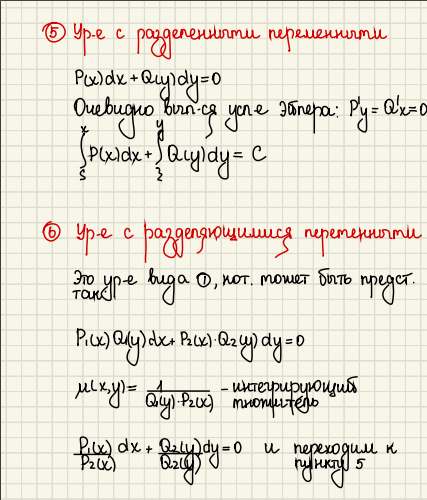 ⑤ Ур-е с разделенными переменными
P(x)dx + Q(y)dy = 0
Очевидно вып-ся усл-е Эйлера: P'y = Q'x = 0
∫ξˣ P(x)dx + ∫ηʸ Q(y)dy = C
⑥ Ур-е с разделяющимися переменными
Это ур-е вида ①, кот. может быть предст.
так:
P₁(x)Q₁(y)dx + P₂(x)·Q₂(y)dy = 0
μ(x,y) = 1/(Q₁(y)·P₂(x)) – интегрирующий
множитель
P₁(x)/P₂(x) dx + Q₂(y)/Q₂(y) dy = 0 и переходим к
пункту 5